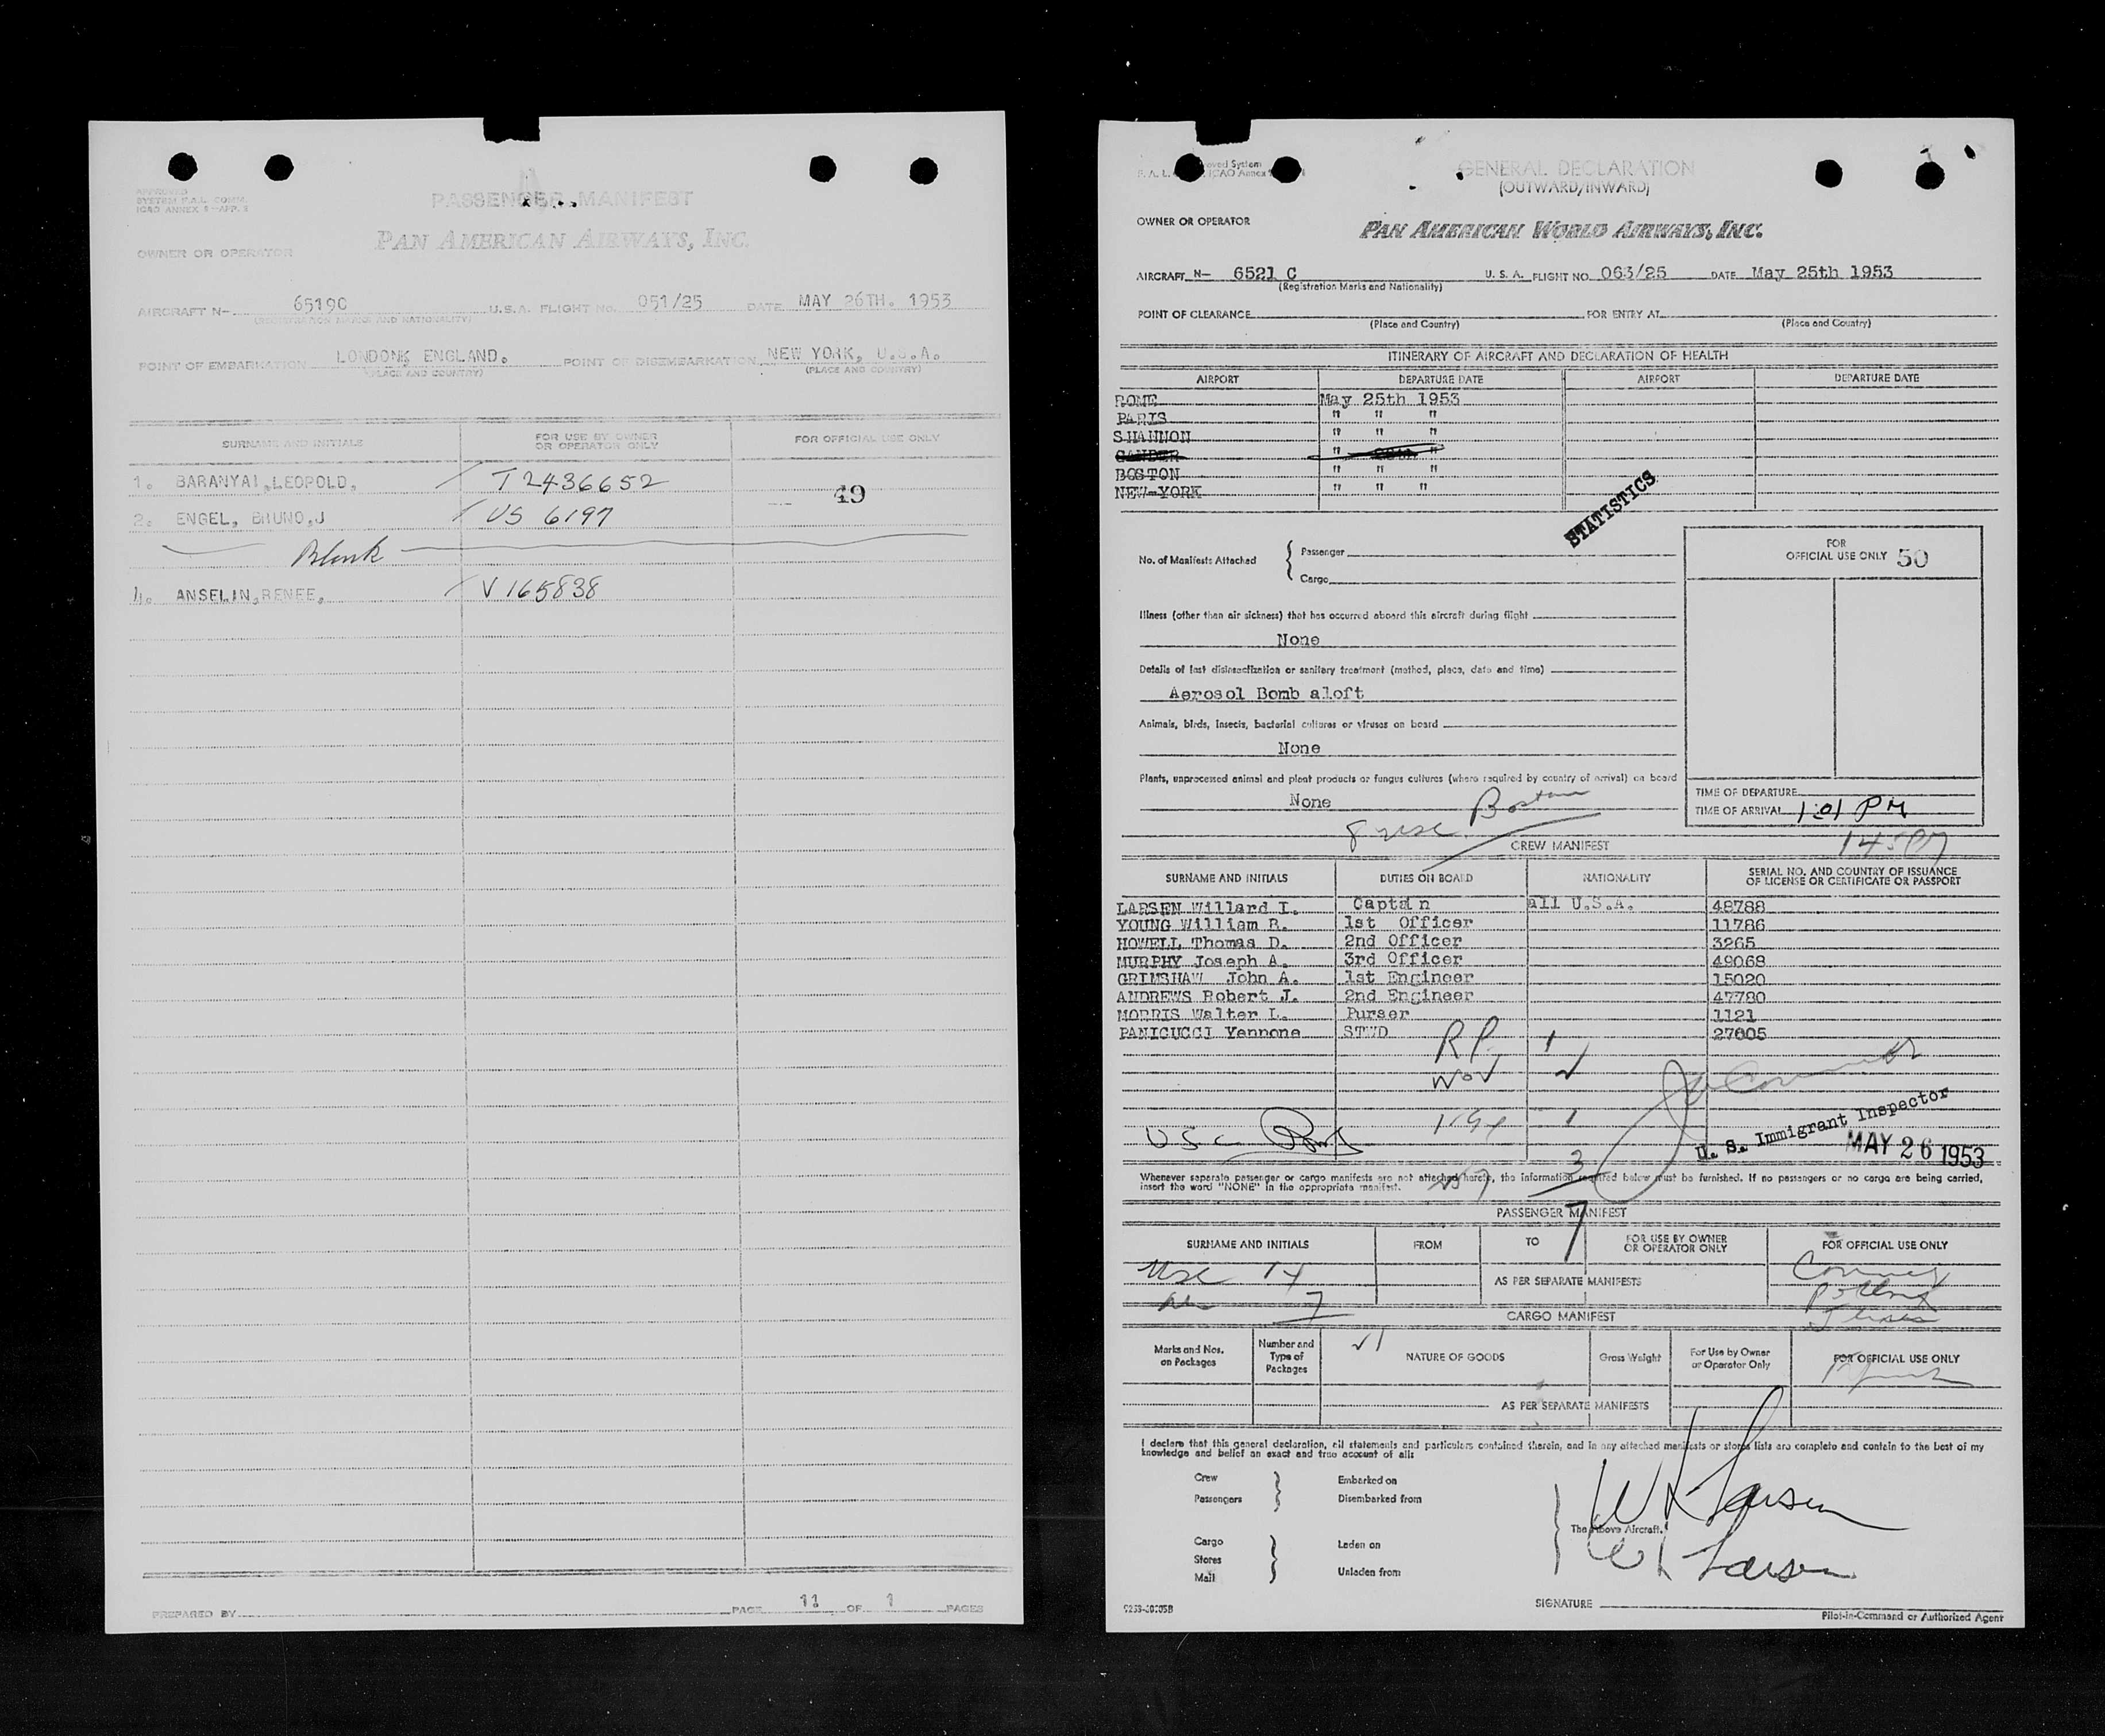 APPROVED
SYSTEM F.A.L. COMM.
ICAO ANNEX 9-APP. 2
PASSENGER MANIFEST
PAN AMERICAN AIRWAYS, INC.
OWNER OR OPERATOR
AIRCRAFT N- 6519C U.S.A. FLIGHT NO. 051/25 DATE MAY 26TH. 1953
(REGISTRATION MARKS AND NATIONALITY)
POINT OF EMBARKATION LONDON, ENGLAND. POINT OF DISEMBARKATION NEW YORK, U.S.A.
(PLACE AND COUNTRY) (PLACE AND COUNTRY)
SURNAME AND INITIALS FOR USE BY OWNER OR OPERATOR ONLY FOR OFFICIAL USE ONLY
1. BARANYAI,LEOPOLD, T2436652
49
2. ENGEL, BRUNO,J US 6197
Blank
4. ANSELIN,RENEE, V 165838
PREPARED BY PAGE 11 OF 1 PAGES
oved System
F. A. L. ICAO Annex
GENERAL DECLARATION
(OUTWARD/INWARD)
OWNER OR OPERATOR PAN AMERICAN WORLD AIRWAYS, INC.
AIRCRAFT N- 6521 C U. S. A. FLIGHT NO. 063/25 DATE May 25th 1953
(Registration Marks and Nationality)
POINT OF CLEARANCE FOR ENTRY AT
(Place and Country) (Place and Country)
ITINERARY OF AIRCRAFT AND DECLARATION OF HEALTH
AIRPORT DEPARTURE DATE AIRPORT DEPARTURE DATE
ROME May 25th 1953
PARIS " " "
SHANNON " " "
GANDER " 26th "
BOSTON " " "
NEW-YORK " " "
STATISTICS
No. of Manifests Attached { Passenger
Cargo
FOR
OFFICIAL USE ONLY 50
Illness (other than air sickness) that has occurred aboard this aircraft during flight
None
Details of last disinsectization or sanitary treatment (method, place, date and time)
Aerosol Bomb aloft
Animals, birds, insects, bacterial cultures or viruses on board
None
Plants, unprocessed animal and plant products or fungus cultures (where required by country of arrival) on board
None
Boston
8 usc
TIME OF DEPARTURE
TIME OF ARRIVAL 1:01 PM
145PM
CREW MANIFEST
SURNAME AND INITIALS DUTIES ON BOARD NATIONALITY SERIAL NO. AND COUNTRY OF ISSUANCE OF LICENSE OR CERTIFICATE OR PASSPORT
LARSEN Willard I. Captain all U.S.A. 48788
YOUNG William R. 1st Officer 11786
HOWELL Thomas D. 2nd Officer 3265
MURPHY Joseph A. 3rd Officer 49068
GRIMSHAW John A. 1st Engineer 15020
ANDREWS Robert J. 2nd Engineer 47780
MORRIS Walter L. Purser 1121
PANICUCCI Vennone STWD 27005
RP 1
WOV
1
USC
3
7
U. S. Immigrant Inspector
MAY 26 1953
Whenever separate passenger or cargo manifests are not attached hereto, the information required below must be furnished. If no passengers or no cargo are being carried,
insert the word "NONE" in the appropriate manifest.
PASSENGER MANIFEST
SURNAME AND INITIALS FROM TO FOR USE BY OWNER OR OPERATOR ONLY FOR OFFICIAL USE ONLY
USC 14
AS PER SEPARATE MANIFESTS
7
CARGO MANIFEST
Marks and Nos. on Packages Number and Type of Packages NATURE OF GOODS Gross Weight For Use by Owner or Operator Only FOR OFFICIAL USE ONLY
AS PER SEPARATE MANIFESTS
I declare that this general declaration, all statements and particulars contained therein, and in any attached manifests or stores lists are complete and contain to the best of my
knowledge and belief an exact and true account of all:
Crew Embarked on
Passengers Disembarked from
The Above Aircraft.
Cargo Laden on
Stores
Mail Unladen from
W L Larsen
W L Larsen
SIGNATURE
Pilot-in-Command or Authorized Agent